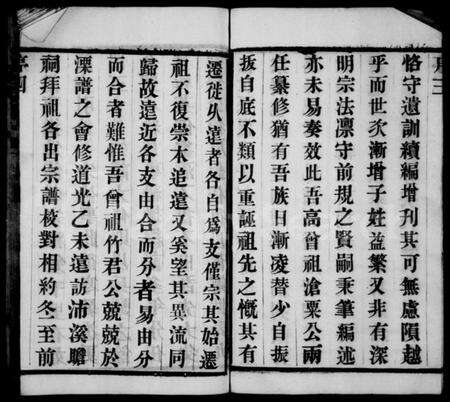 恪守遺訓續編增刊其可無虞隕越
乎而世次漸增子姓益繁又非有深
明宗法凛守前規之賢嗣秉筆編述
亦未易奏效此吾高曾祖滄粟公兩
任纂修猶有吾族日漸凌替少自振
拔自底不類以重誣祖先之慨其有
遷徙从遠者各自為支僅宗其始遷
祖不復崇本追遠又奚望其異流同
歸故遠近各支由合而分者易由分
而合者難惟吾曾祖竹君公競競於
溧譜之會修道光乙未遠訪沛溪瞻
祠拜祖各出宗譜校對相約冬至前